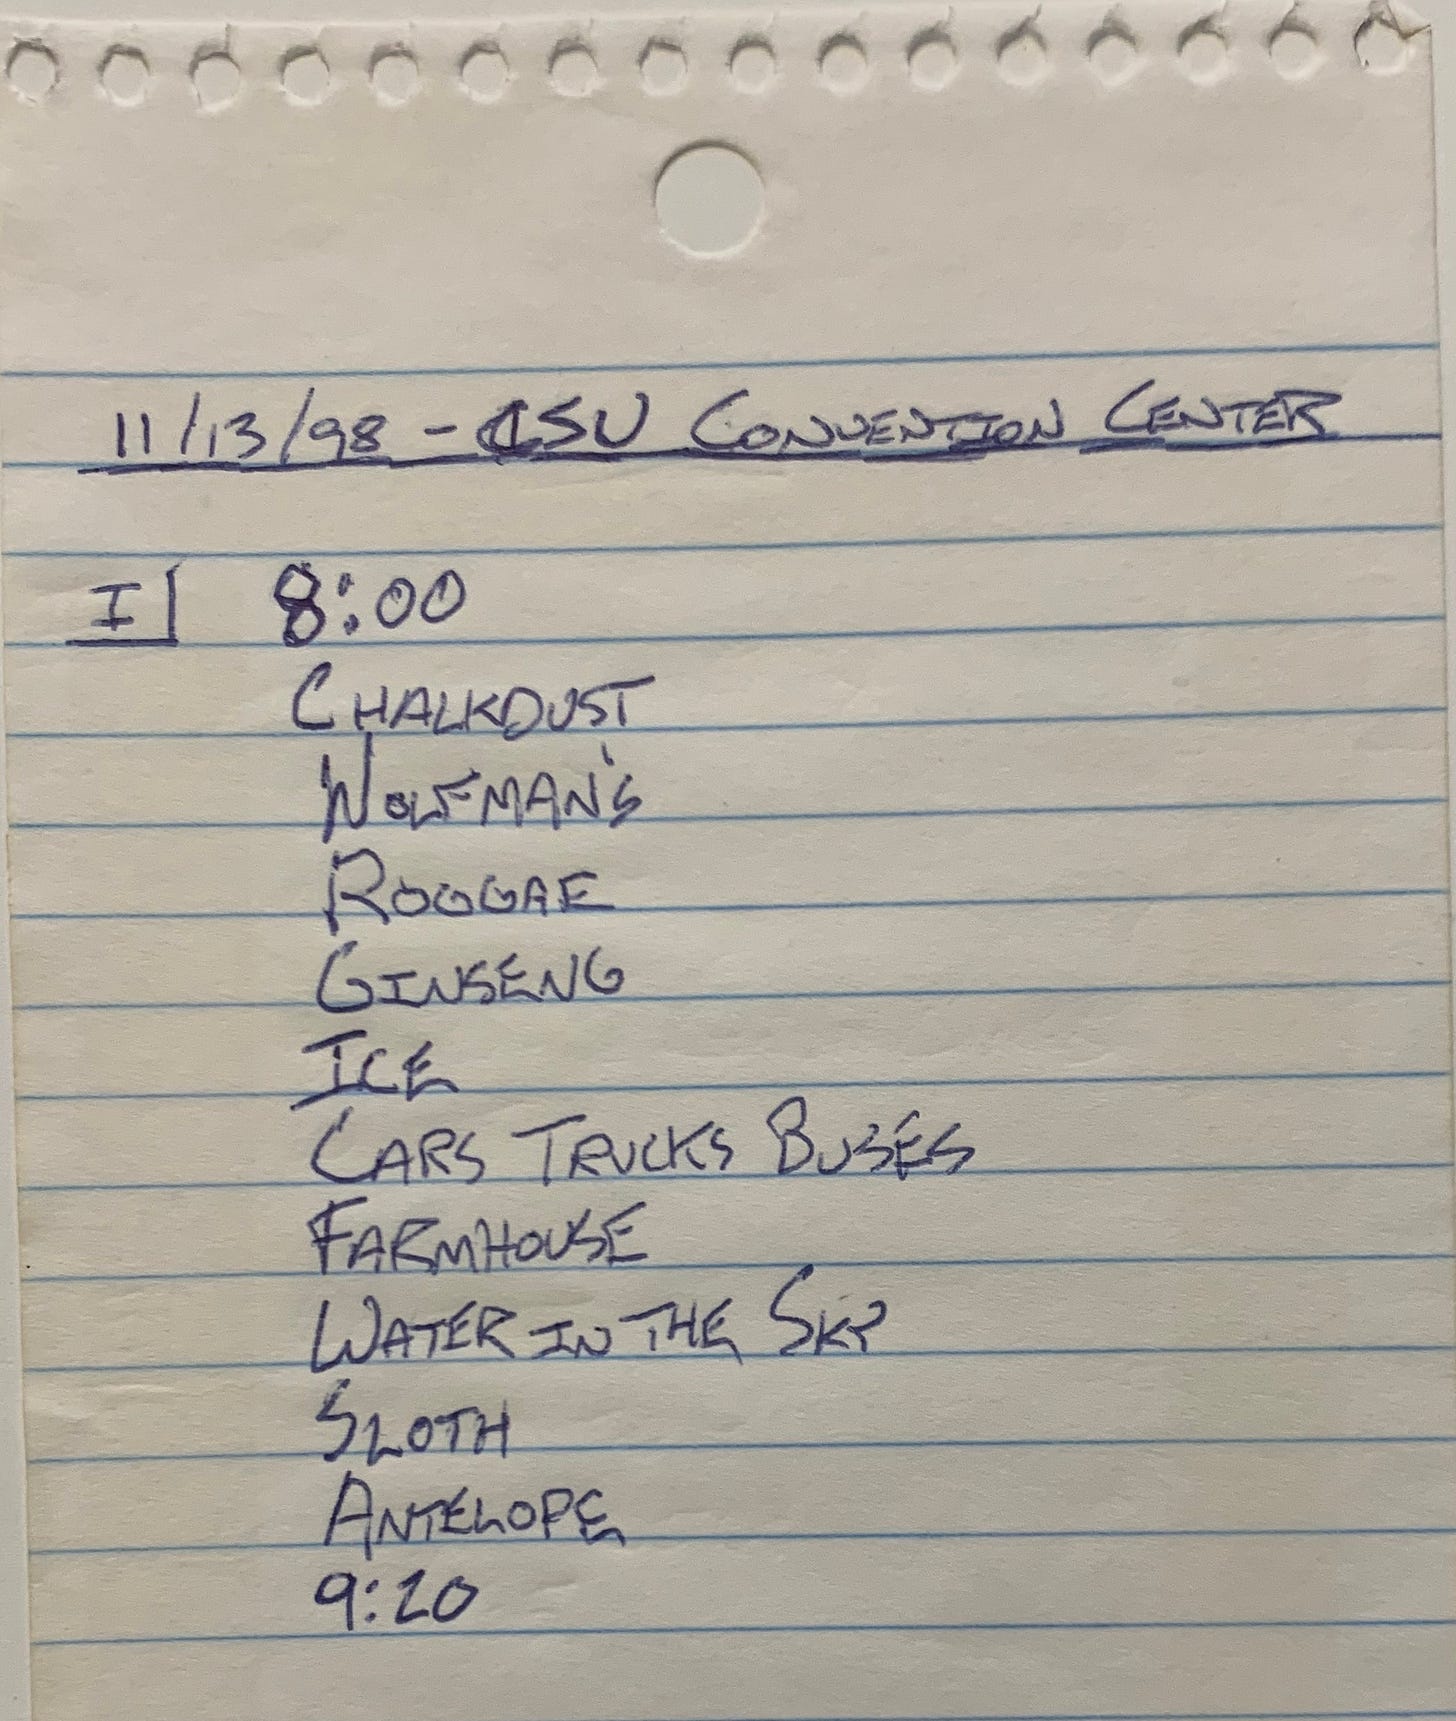 11/13/98 - CSU CONVENTION CENTER
I 8:00
CHALKDUST
WOLFMAN'S
ROGGAE
GINSENG
ICE
CARS TRUCKS BUSES
FARMHOUSE
WATER IN THE SKY
SLOTH
ANTELOPE
9:20